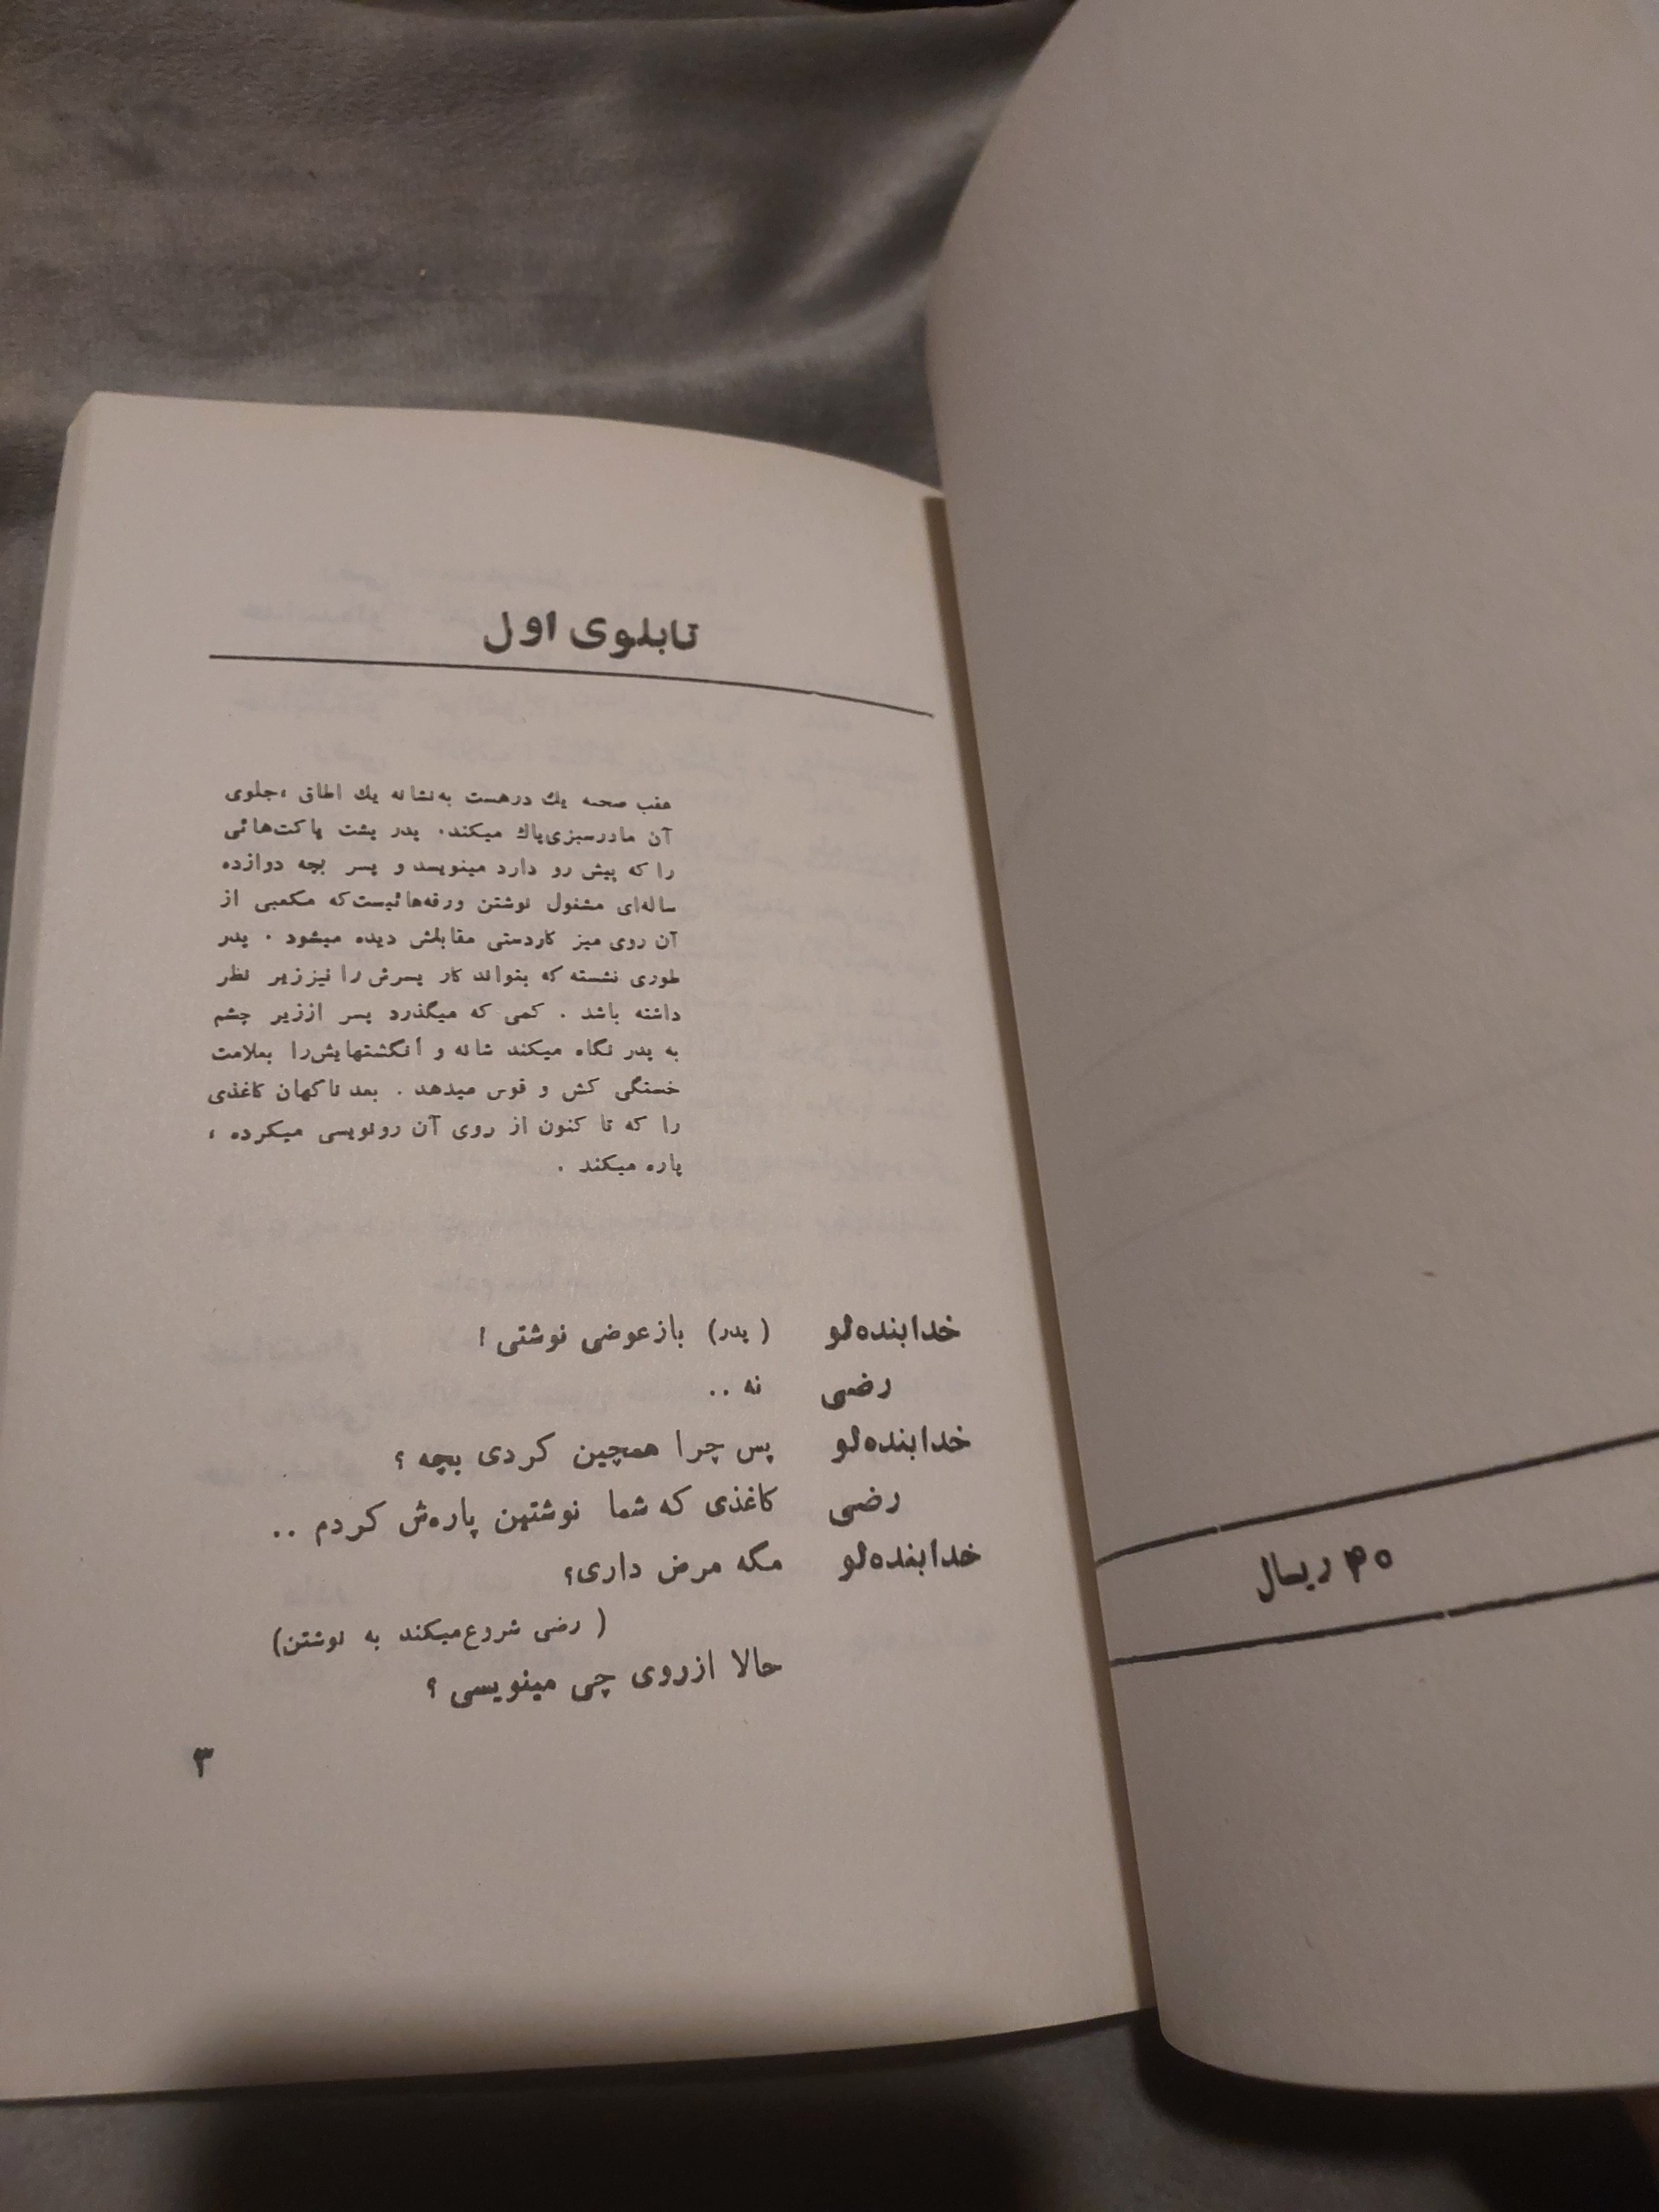 ۴۰ ریال
تابلوی اول
عقب صحنه یك درهست به‌نشانه یك اطاق ،جلوی
آن مادرسبزی‌پاك میکند. پدر پشت پاکت‌هائی
را که پیش رو دارد مینویسد و پسر بچه دوازده
ساله‌ای مشغول نوشتن ورقه‌هائیست‌که مکعبی از
آن روی میز کاردستی مقابلش دیده میشود . پدر
طوری نشسته که بتواند کار پسرش را نیززیر نظر
داشته باشد . کمی که میگذرد پسر اززیر چشم
به پدر نگاه میکند شانه و انگشتهایش‌را بعلامت
خستگی کش و قوس میدهد . بعد ناگهان کاغذی
را که تا کنون از روی آن رونویسی میکرده ،
پاره میکند .
خدابنده‌لو (پدر) بازعوضی نوشتی !
رضی نه ..
خدابنده‌لو پس چرا همچین کردی بچه ؟
رضی کاغذی که شما نوشتین پاره‌ش کردم ..
خدابنده‌لو مگه مرض داری؟
( رضی شروع‌میکند به نوشتن)
حالا ازروی چی مینویسی ؟
۳